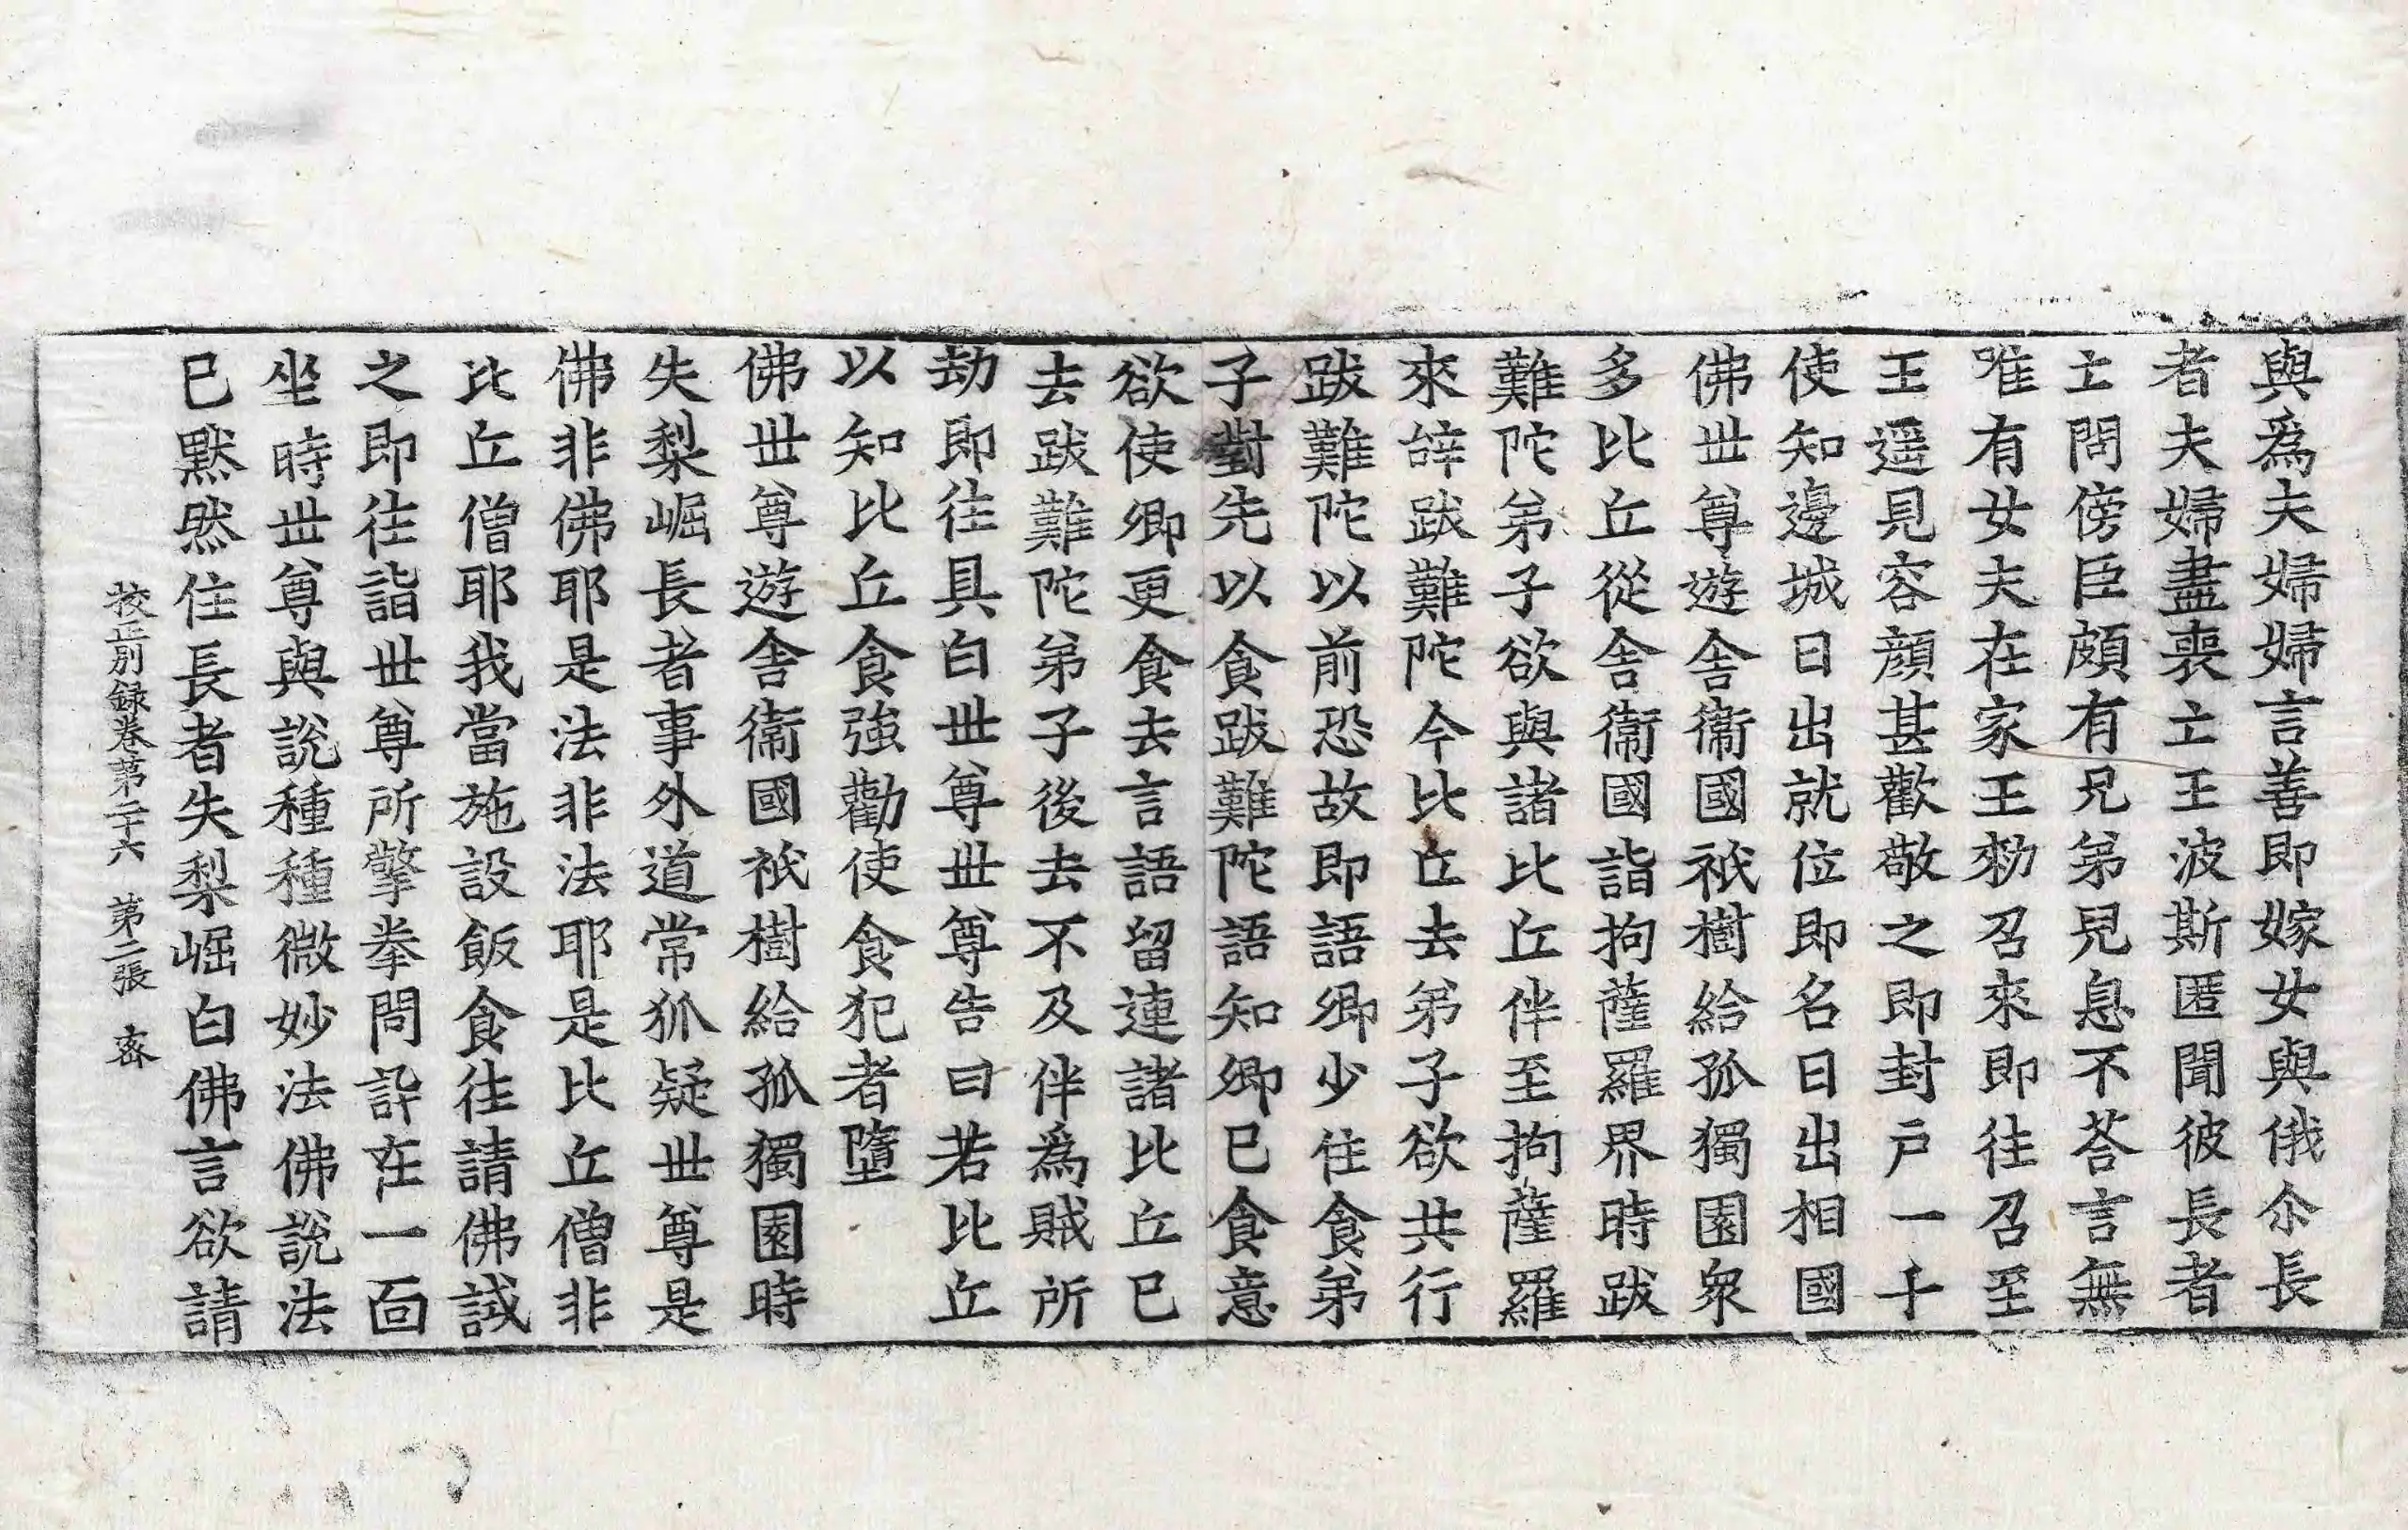 與爲夫婦婦言善即嫁女與俄尒長
者夫婦盡喪亡王波斯匿聞彼長者
亡問傍臣頗有兄弟兒息不荅言無
唯有女夫在家王勑召來即往召至
王遥見容顔甚歡敬之即封戶一千
使知邊城日出就位即名日出相國
佛世尊遊舍衞國祇樹給孤獨園衆
多比丘從舍衞國詣拘薩羅界時跋
難陀弟子欲與諸比丘伴至拘薩羅
來辝跋難陀今比丘去弟子欲共行
跋難陀以前恐故即語卿少住食弟
子對先以食跋難陀語知卿已食意
欲使卿更食去言語留連諸比丘已
去跋難陀弟子後去不及伴爲賊所
劫即往具白世尊世尊告曰若比丘
以知比丘食強勸使食犯者墮
佛世尊遊舍衞國祇樹給孤獨園時
失梨崛長者事外道常狐疑世尊是
佛非佛耶是法非法耶是比丘僧非
比丘僧耶我當施設飯食往請佛試
之即往詣世尊所擎拳問訊在一面
坐時世尊與說種種微妙法佛說法
已黙然住長者失梨崛白佛言欲請
挍正別録卷第二十六 第二張 宻